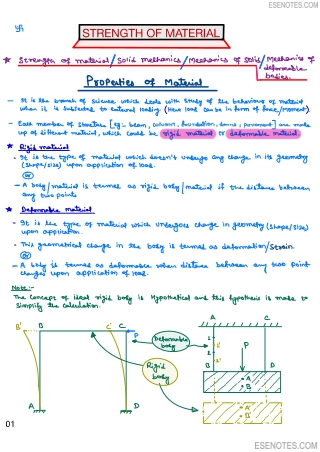 ESENOTES.COM
卐
STRENGTH OF MATERIAL
★ Strength of material / Solid mechanics / Mechanics of Solis / Mechanics of deformable bodies.
Properties of Material
– It is the branch of Science which deals with study of the behaviour of material
when it is subjected to external loading. (Here load can be in form of force/moment)
– Each member of structure [eg. beam, column, foundation, dome, pavement] are made
up of different material, which could be rigid material or deformable material.
★ Rigid material
- It is the type of material which doesn't undergo any change in its geometry
(shape/size) upon application of load.
OR
– A body/material is termed as rigid body/material if the distance between
any two points
★ Deformable material
- It is the type of material which undergoes change in geometry (shape/size)
upon application.
- This geometrical change in the body is termed as deformation/strain.
OR
– A body is termed as deformable when distance between any two point
changes upon application of load.
Note:-
The concept of ideal rigid body is Hypothetical and this hypothesis is made to
simplify the calculation.
B' B C' C P
Deformable body
Rigid body
A D
A C
1
2
B D
P
A
B
A'
B'
01
ESENOTES.COM